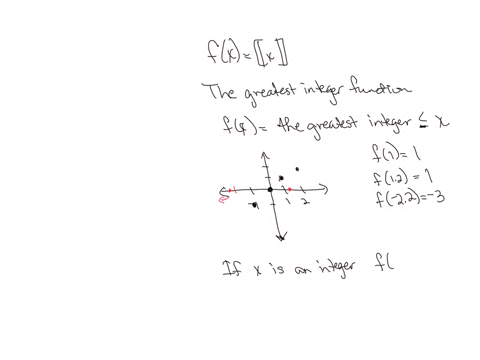 f(x) = [[x]]
The greatest integer function
f(x) = the greatest integer ≤ x
f(1) = 1
f(1.2) = 1
f(-2.2) = -3
-1 1 2
If x is an integer f(